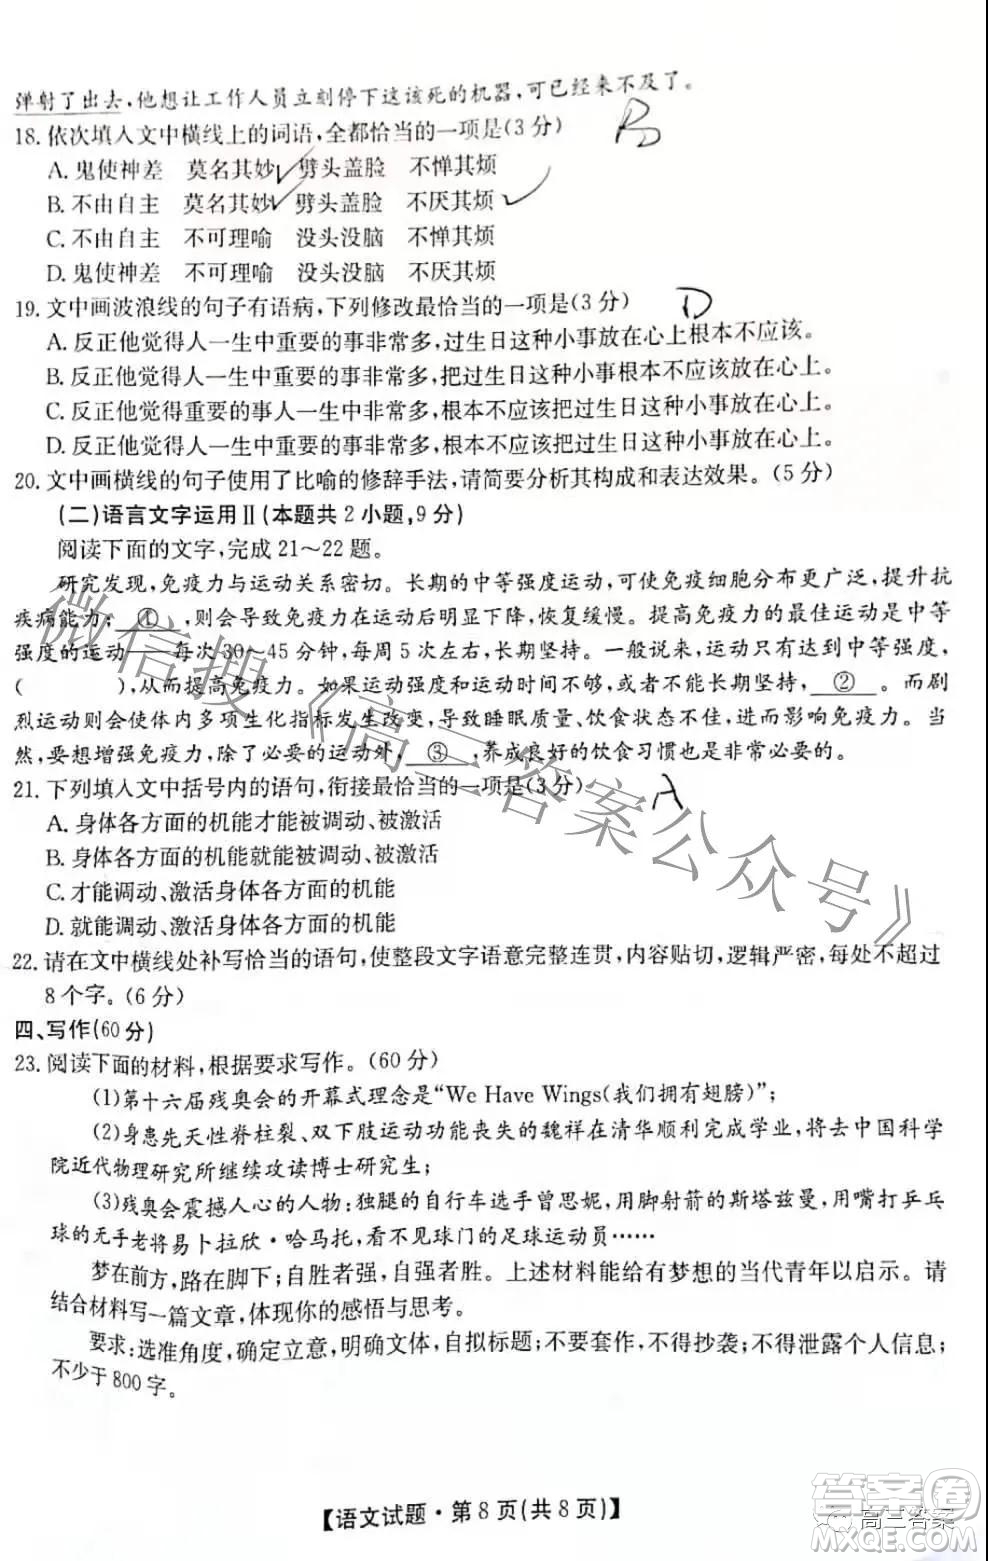 弹射了出去,他想让工作人员立刻停下这该死的机器,可已经来不及了。
18.依次填入文中横线上的词语,全都恰当的一项是(3分) B
A.鬼使神差 莫名其妙 劈头盖脸 不惮其烦
B.不由自主 莫名其妙 劈头盖脸 不厌其烦
C.不由自主 不可理喻 没头没脑 不惮其烦
D.鬼使神差 不可理喻 没头没脑 不厌其烦
19.文中画波浪线的句子有语病,下列修改最恰当的一项是(3分) D
A.反正他觉得人一生中重要的事非常多,过生日这种小事放在心上根本不应该。
B.反正他觉得人一生中重要的事非常多,把过生日这种小事根本不应该放在心上。
C.反正他觉得重要的事人一生中非常多,根本不应该把过生日这种小事放在心上。
D.反正他觉得人一生中重要的事非常多,根本不应该把过生日这种小事放在心上。
20.文中画横线的句子使用了比喻的修辞手法,请简要分析其构成和表达效果。(5分)
(二)语言文字运用Ⅱ(本题共2小题,9分)
阅读下面的文字,完成21~22题。
研究发现,免疫力与运动关系密切。长期的中等强度运动,可使免疫细胞分布更广泛,提升抗
疾病能力; ① ,则会使免疫力在运动后明显下降,恢复缓慢。提高免疫力的最佳运动是中等
强度的运动——每次30~45分钟,每周5次左右,长期坚持。一般说来,运动只有达到这种程度,
( ),从而提高免疫力。如果运动强度和运动时间不够,或者不能长期坚持, ② 。而剧
烈运动则会使体内多项生化指标发生改变,导致睡眠质量、饮食状态不佳,进而影响免疫力。当
然,要想增强免疫力,除了必要的运动外, ③ ,养成良好的饮食习惯也是非常必要的。
21.下列填入文中括号内的语句,衔接最恰当的一项是(3分) A
A.身体各方面的机能才能被调动、被激活
B.身体各方面的机能就能被调动、被激活
C.才能调动、激活身体各方面的机能
D.就能调动、激活身体各方面的机能
22.请在文中横线处补写恰当的语句,使整段文字语意完整连贯,内容贴切,逻辑严密,每处不超过
8个字。(6分)
四、写作(60分)
23.阅读下面的材料,根据要求写作。(60分)
(1)第十六届残奥会的开幕式理念是“We Have Wings(我们拥有翅膀)”;
(2)身患先天性脊柱裂、双下肢运动功能丧失的魏祥在清华顺利完成学业,将去中国科学
院近代物理研究所继续攻读博士研究生;
(3)残奥会震撼人心的人物:独腿的自行车选手曾思妮,用脚射箭的斯塔兹曼,用嘴打乒乓
球的无手老将易卜拉欣·哈马托,看不见球门的足球运动员……
梦在前方,路在脚下;自胜者强,自强者胜。上述材料能给有梦想的当代青年以启示。请
结合材料写一篇文章,体现你的感悟与思考。
要求:选准角度,确定立意,明确文体,自拟标题;不要套作,不得抄袭;不得泄露个人信息;
不少于800字。
【语文试题·第8页(共8页)】
微信搜《高三答案公众号》
答案卷
高三答案
MXQE.COM